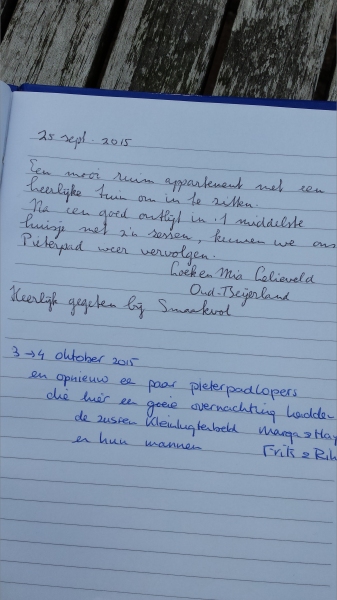 25 sept. 2015
Een mooi ruim appartement met een
heerlijke tuin om in te zitten.
Na een goed ontbijt in 't middelste
huisje met z'n sessen, kunnen we ons
Pieterpad weer vervolgen.
Loek en Mia Lelieveld
Oud-Beijerland
Heerlijk gegeten bij Smaakvol
3 → 4 oktober 2015
en opnieuw ee paar pieterpadlopers
die hier een goeie overnachting hadden
de zussen Kleinlugtenbeld Marga &
en hun mannen Erik &